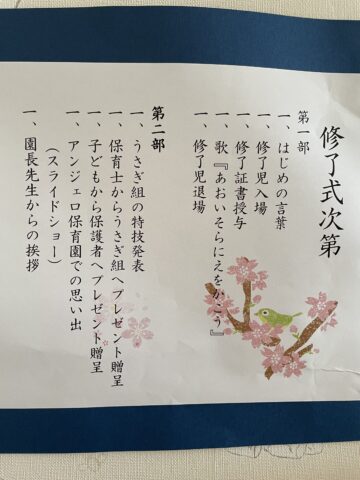 修了式次第
第一部
一、はじめの言葉
一、修了児入場
一、修了証書授与
一、歌『あおいそらにえをかこう』
一、修了児退場
第二部
一、うさぎ組の特技発表
一、保育士からうさぎ組へプレゼント贈呈
一、子どもから保護者へプレゼント贈呈
一、アンジェロ保育園での思い出
（スライドショー）
一、園長先生からの挨拶